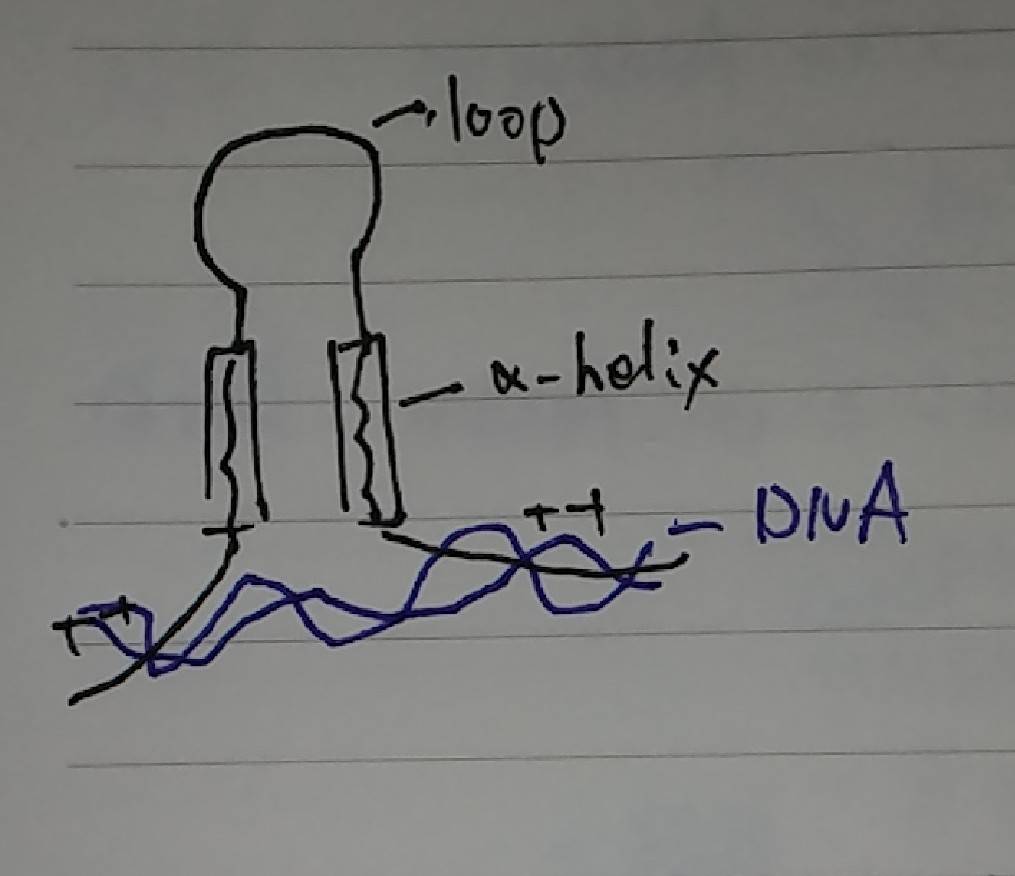 loop
α-helix
++
DNA
++